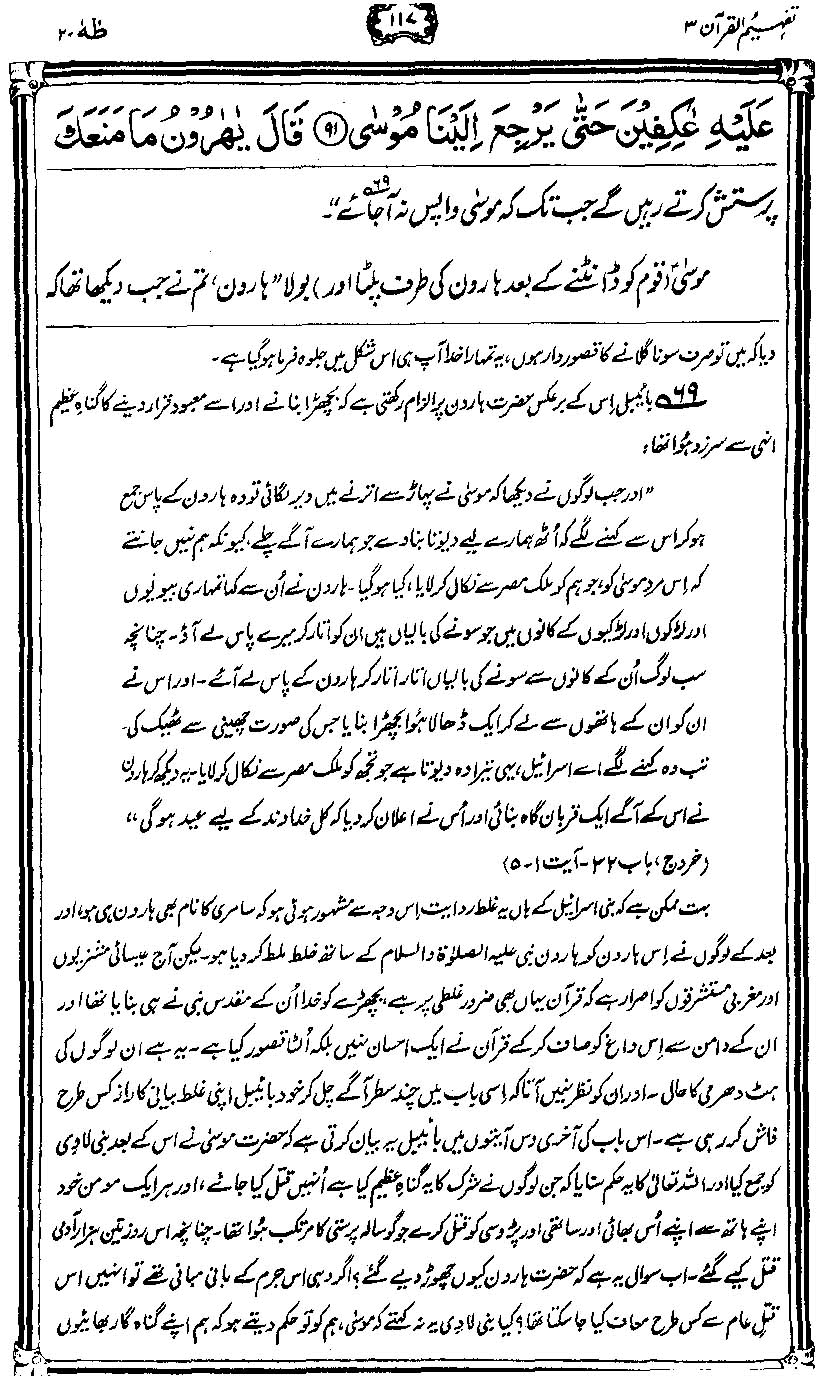 تفہیم القرآن ۳
۱۱۷
طٰہٰ ۲۰
عَلَيْهِ عٰكِفِيْنَ حَتّٰى يَرْجِعَ اِلَيْنَا مُوْسٰى ﴿۹۱﴾ قَالَ يٰهٰرُوْنُ مَا مَنَعَكَ
پرستش کرتے رہیں گے جب تک کہ موسیٰ واپس نہ آجائے"۔ ۶۹
موسیٰ (قوم کو ڈانٹنے کے بعد ہارون کی طرف پلٹا اور) بولا "ہارون، تم نے جب دیکھا تھا کہ
دیا کہ میں تو صرف سونا گلانے کا قصور وار ہوں، یہ تمہارا خدا آپ ہی اس شکل میں جلوہ فرما ہو گیا ہے۔
۶۹ بائیبل اِس کے برعکس حضرت ہارون پر الزام رکھتی ہے کہ بچھڑا بنانے اور اسے معبود قرار دینے کا گناہِ عظیم
انہی سے سرزد ہوا تھا:
"اور جب لوگوں نے دیکھا کہ موسیٰ نے پہاڑ سے اترنے میں دیر لگائی تو وہ ہارون کے پاس جمع
ہو کر اس سے کہنے لگے کہ اُٹھ ہمارے لیے دیوتا بنا دے جو ہمارے آگے چلے، کیونکہ ہم نہیں جانتے
کہ اِس مردِ موسیٰ کو، جو ہم کو ملک مصر سے نکال کر لایا، کیا ہو گیا۔ ہارون نے اُن سے کہا تمہاری بیویوں
اور لڑکوں اور لڑکیوں کے کانوں میں جو سونے کی بالیاں ہیں ان کو اتار کر میرے پاس لے آؤ۔ چنانچہ
سب لوگ اُن کے کانوں سے سونے کی بالیاں اتار اتار کر ہارون کے پاس لے آئے۔ اور اس نے
ان کو ان کے ہاتھوں سے لے کر ایک ڈھالا ہوا بچھڑا بنایا جس کی صورت چھینی سے ٹھیک کی۔
تب وہ کہنے لگے اے اسرائیل، یہی تیرا وہ دیوتا ہے جو تجھ کو ملک مصر سے نکال کر لایا۔ یہ دیکھ کر ہارون
نے اس کے آگے ایک قربان گاہ بنائی اور اُس نے اعلان کر دیا کہ کل خداوند کے لیے عید ہو گی"
(خروج، باب ۳۲۔ آیت ۱۔۵)
بہت ممکن ہے کہ بنی اسرائیل کے ہاں یہ غلط روایت اِس وجہ سے مشہور ہوئی ہو کہ سامری کا نام بھی ہارون ہی ہو، اور
بعد کے لوگوں نے اِس ہارون کو ہارون نبی علیہ الصلوٰۃ والسلام کے ساتھ خلط ملط کر دیا ہو۔ لیکن آج عیسائی مشنریوں
اور مغربی مستشرقوں کو اصرار ہے کہ قرآن یہاں بھی ضرور غلطی پر ہے، بچھڑے کو خدا اُن کے مقدس نبی نے ہی بنایا تھا اور
ان کے دامن سے اِس داغ کو صاف کر کے قرآن نے ایک احسان نہیں بلکہ اُلٹا قصور کیا ہے۔ یہ ہے ان لوگوں کی
ہٹ دھرمی کا حال۔ اور ان کو نظر نہیں آتا کہ اِسی باب میں چند سطر آگے چل کر خود بائیبل اپنی غلط بیانی کا راز کس طرح
فاش کر رہی ہے۔ اس باب کی آخری دس آیتوں میں بائیبل یہ بیان کرتی ہے کہ حضرت موسیٰ نے اس کے بعد بنی لاوی
کو جمع کیا اور اللہ تعالیٰ کا یہ حکم سنایا کہ جن لوگوں نے شرک کا یہ گناہِ عظیم کیا ہے اُنہیں قتل کیا جائے، اور ہر ایک مومن خود
اپنے ہاتھ سے اپنے اُس بھائی اور ساتھی اور پڑوسی کو قتل کرے جو گوسالہ پرستی کا مرتکب ہوا تھا۔ چنانچہ اس روز تین ہزار آدمی
قتل کیے گئے۔ اب سوال یہ ہے کہ حضرت ہارون کیوں چھوڑ دیے گئے؟ اگر وہی اس جرم کے بانی مبانی تھے تو انہیں اس
قتلِ عام سے کس طرح معاف کیا جا سکتا تھا؟ کیا بنی لاوی یہ نہ کہتے کہ موسیٰ، ہم کو تو حکم دیتے ہو کہ ہم اپنے گناہ گار بھائیوں